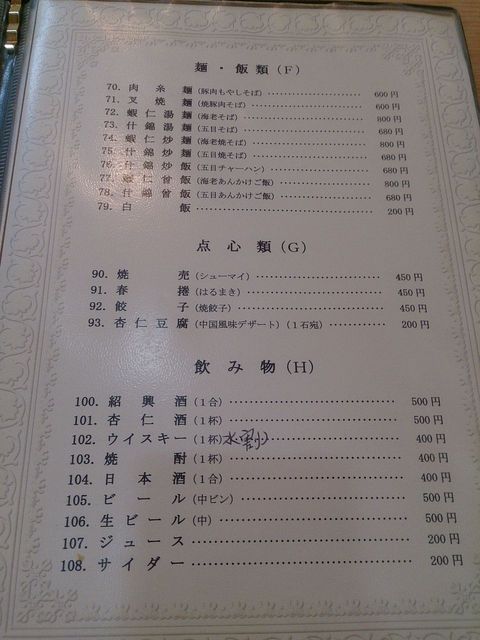 麺・飯類（F）
70. 肉糸麺（豚肉もやしそば）………… 600円
71. 叉焼麺（焼豚肉そば）………… 600円
72. 蝦仁湯麺（海老そば）………… 800円
73. 什錦湯麺（五目そば）………… 680円
74. 蝦仁炒麺（海老焼そば）………… 800円
75. 什錦炒麺（五目焼そば）………… 680円
76. 什錦炒飯（五目チャーハン）………… 680円
77. 蝦仁會飯（海老あんかけご飯）………… 800円
78. 什錦會飯（五目あんかけご飯）………… 680円
79. 白飯………… 200円
点心類（G）
90. 焼売（シューマイ）………… 450円
91. 春捲（はるまき）………… 450円
92. 餃子（焼餃子）………… 450円
93. 杏仁豆腐（中国風味デザート）（1石宛）………… 200円
飲み物（H）
100. 紹興酒（1合）………… 500円
101. 杏仁酒（1杯）………… 500円
102. ウイスキー（1杯）水割り………… 400円
103. 焼酎（1杯）………… 400円
104. 日本酒（1合）………… 400円
105. ビール（中ビン）………… 500円
106. 生ビール（中）………… 500円
107. ジュース………… 200円
108. サイダー………… 200円